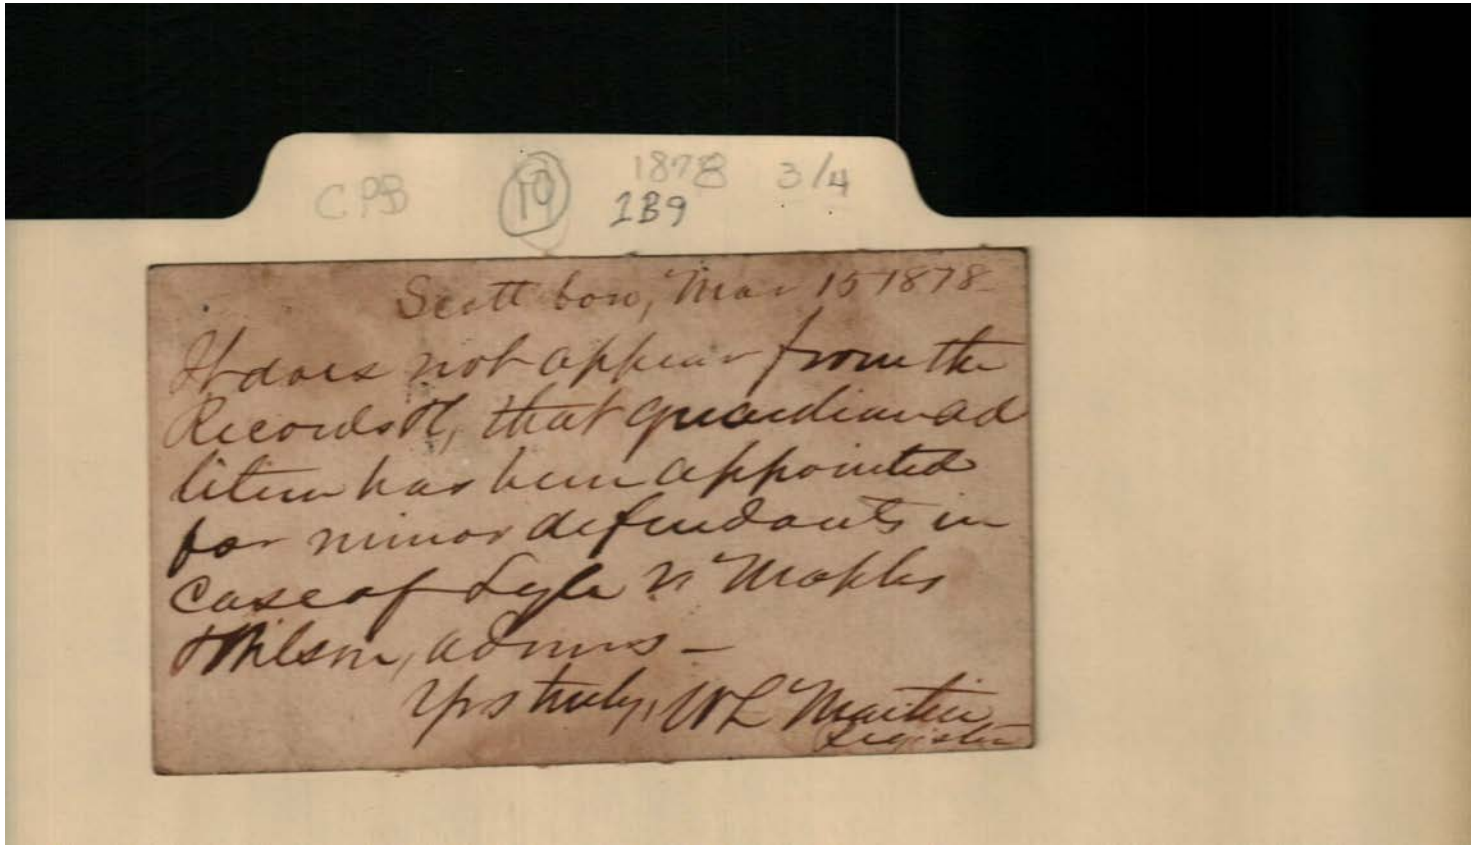 CPB 19 1878 3/4
1B9
Scottboro, Mar 15 1878
It does not appear from the
Records, that guardian ad
litem has been appointed
for minor defendants in
case of Lyle vs Maples
& Wilson, admrs –
Yrs truly, W L Martin
Register